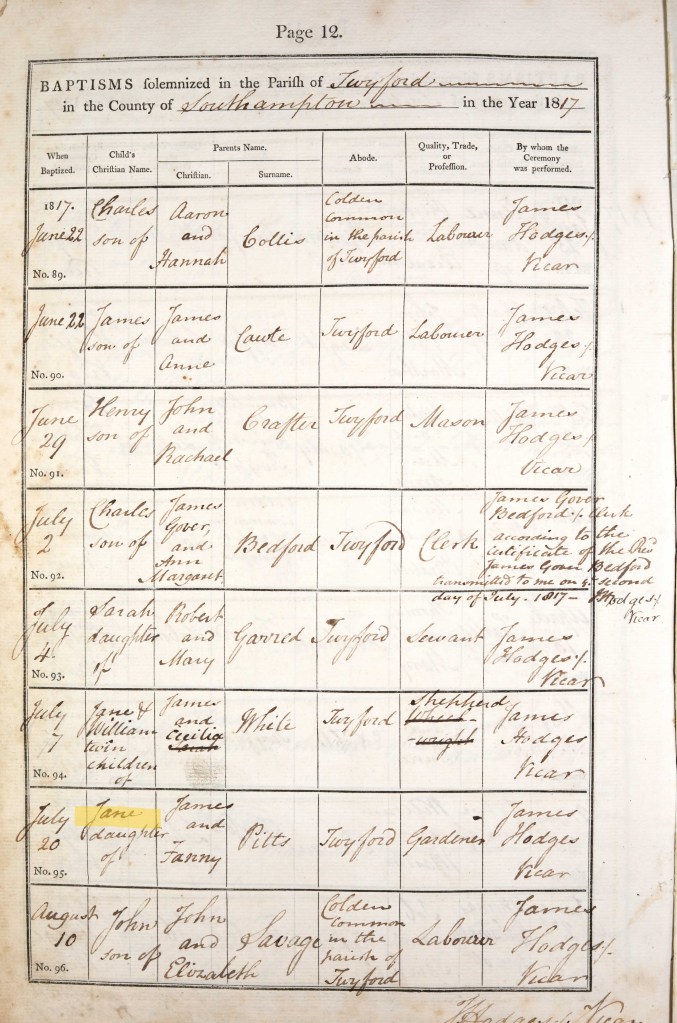 Page 12.
BAPTISMS solemnized in the Parish of Twyford
in the County of Southampton in the Year 1817
When Baptized.
Child's Christian Name.
Parents Name.
Christian.
Surname.
Abode.
Quality, Trade, or Profession.
By whom the Ceremony was performed.
1817.
June 22
No. 89.
Charles
son of
Aaron
and
Hannah
Collis
Colden
Common
in the parish
of Twyford
Labourer
James
Hodges
Vicar
June 22
No. 90.
James
son of
James
and
Anne
Cawte
Twyford
Labourer
James
Hodges
Vicar
June
29
No. 91.
Henry
son of
John
and
Rachael
Crafter
Twyford
Mason
James
Hodges
Vicar
July
2
No. 92.
Charles
son of
James
Gover,
and
Ann
Margaret
Bedford
Twyford
Clerk
James Gover
Bedford Clerk
according to the
certificate of the Revd
James Gover Bedford
transmitted to me on ye second
day of July - 1817 - JHodges
Vicar
July
4.
No. 93.
Sarah
daughter
of
Robert
and
Mary
Garred
Twyford
Servant
James
Hodges
Vicar
July
7
No. 94.
Jane &
William
twin
children
of
James
and
Cecilia
Sarah
White
Twyford
Shepherd
Wheel-
-wright
James
Hodges
Vicar
July
20
No. 95.
Jane
daughter
of
James
and
Fanny
Pitts
Twyford
Gardener
James
Hodges
Vicar
August
10
No. 96.
John
son of
John
and
Elizabeth
Savage
Colden
Common
in the
parish of
Twyford
Labourer
James
Hodges
Vicar
JHodges Vicar